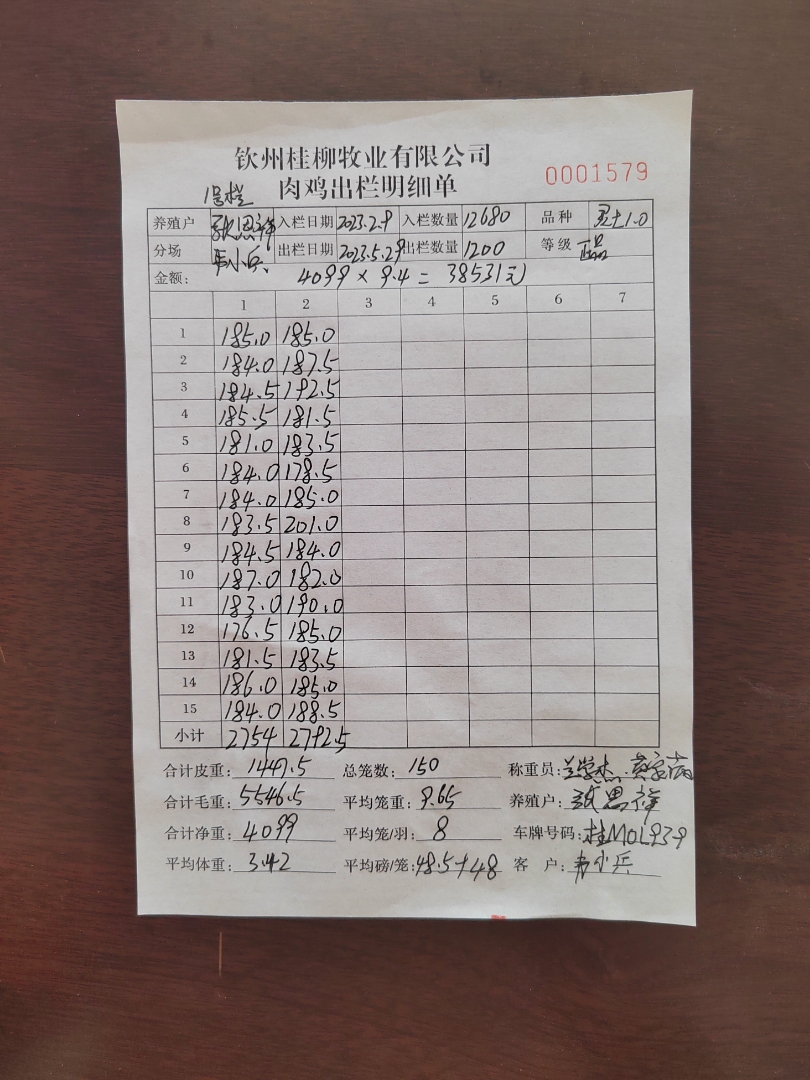 钦州桂柳牧业有限公司
肉鸡出栏明细单
0001579
1号栏
养殖户 张恩祥 入栏日期 2023.2.9 入栏数量 12680 品种
分场 韦小兵 出栏日期 2023.5.29 出栏数量 1200 等级 正品
金额: 4099 × 9.4 = 38531元
1 2 3 4 5 6 7
1 185.0 185.0
2 184.0 187.5
3 184.5 192.5
4 185.5 181.5
5 181.0 183.5
6 184.0 178.5
7 184.0 185.0
8 183.5 201.0
9 184.5 184.0
10 187.0 182.0
11 183.0 190.0
12 176.5 185.0
13 181.5 183.5
14 186.0 185.0
15 184.0 188.5
小计 2754 2792.5
合计皮重: 1447.5 总笼数: 150 称重员:
合计毛重: 5546.5 平均笼重: 9.65 养殖户: 张恩祥
合计净重: 4099 平均笼/羽: 8 车牌号码: 桂M0L939
平均体重: 3.42 平均磅/笼: 48.5+48 客 户: 韦小兵